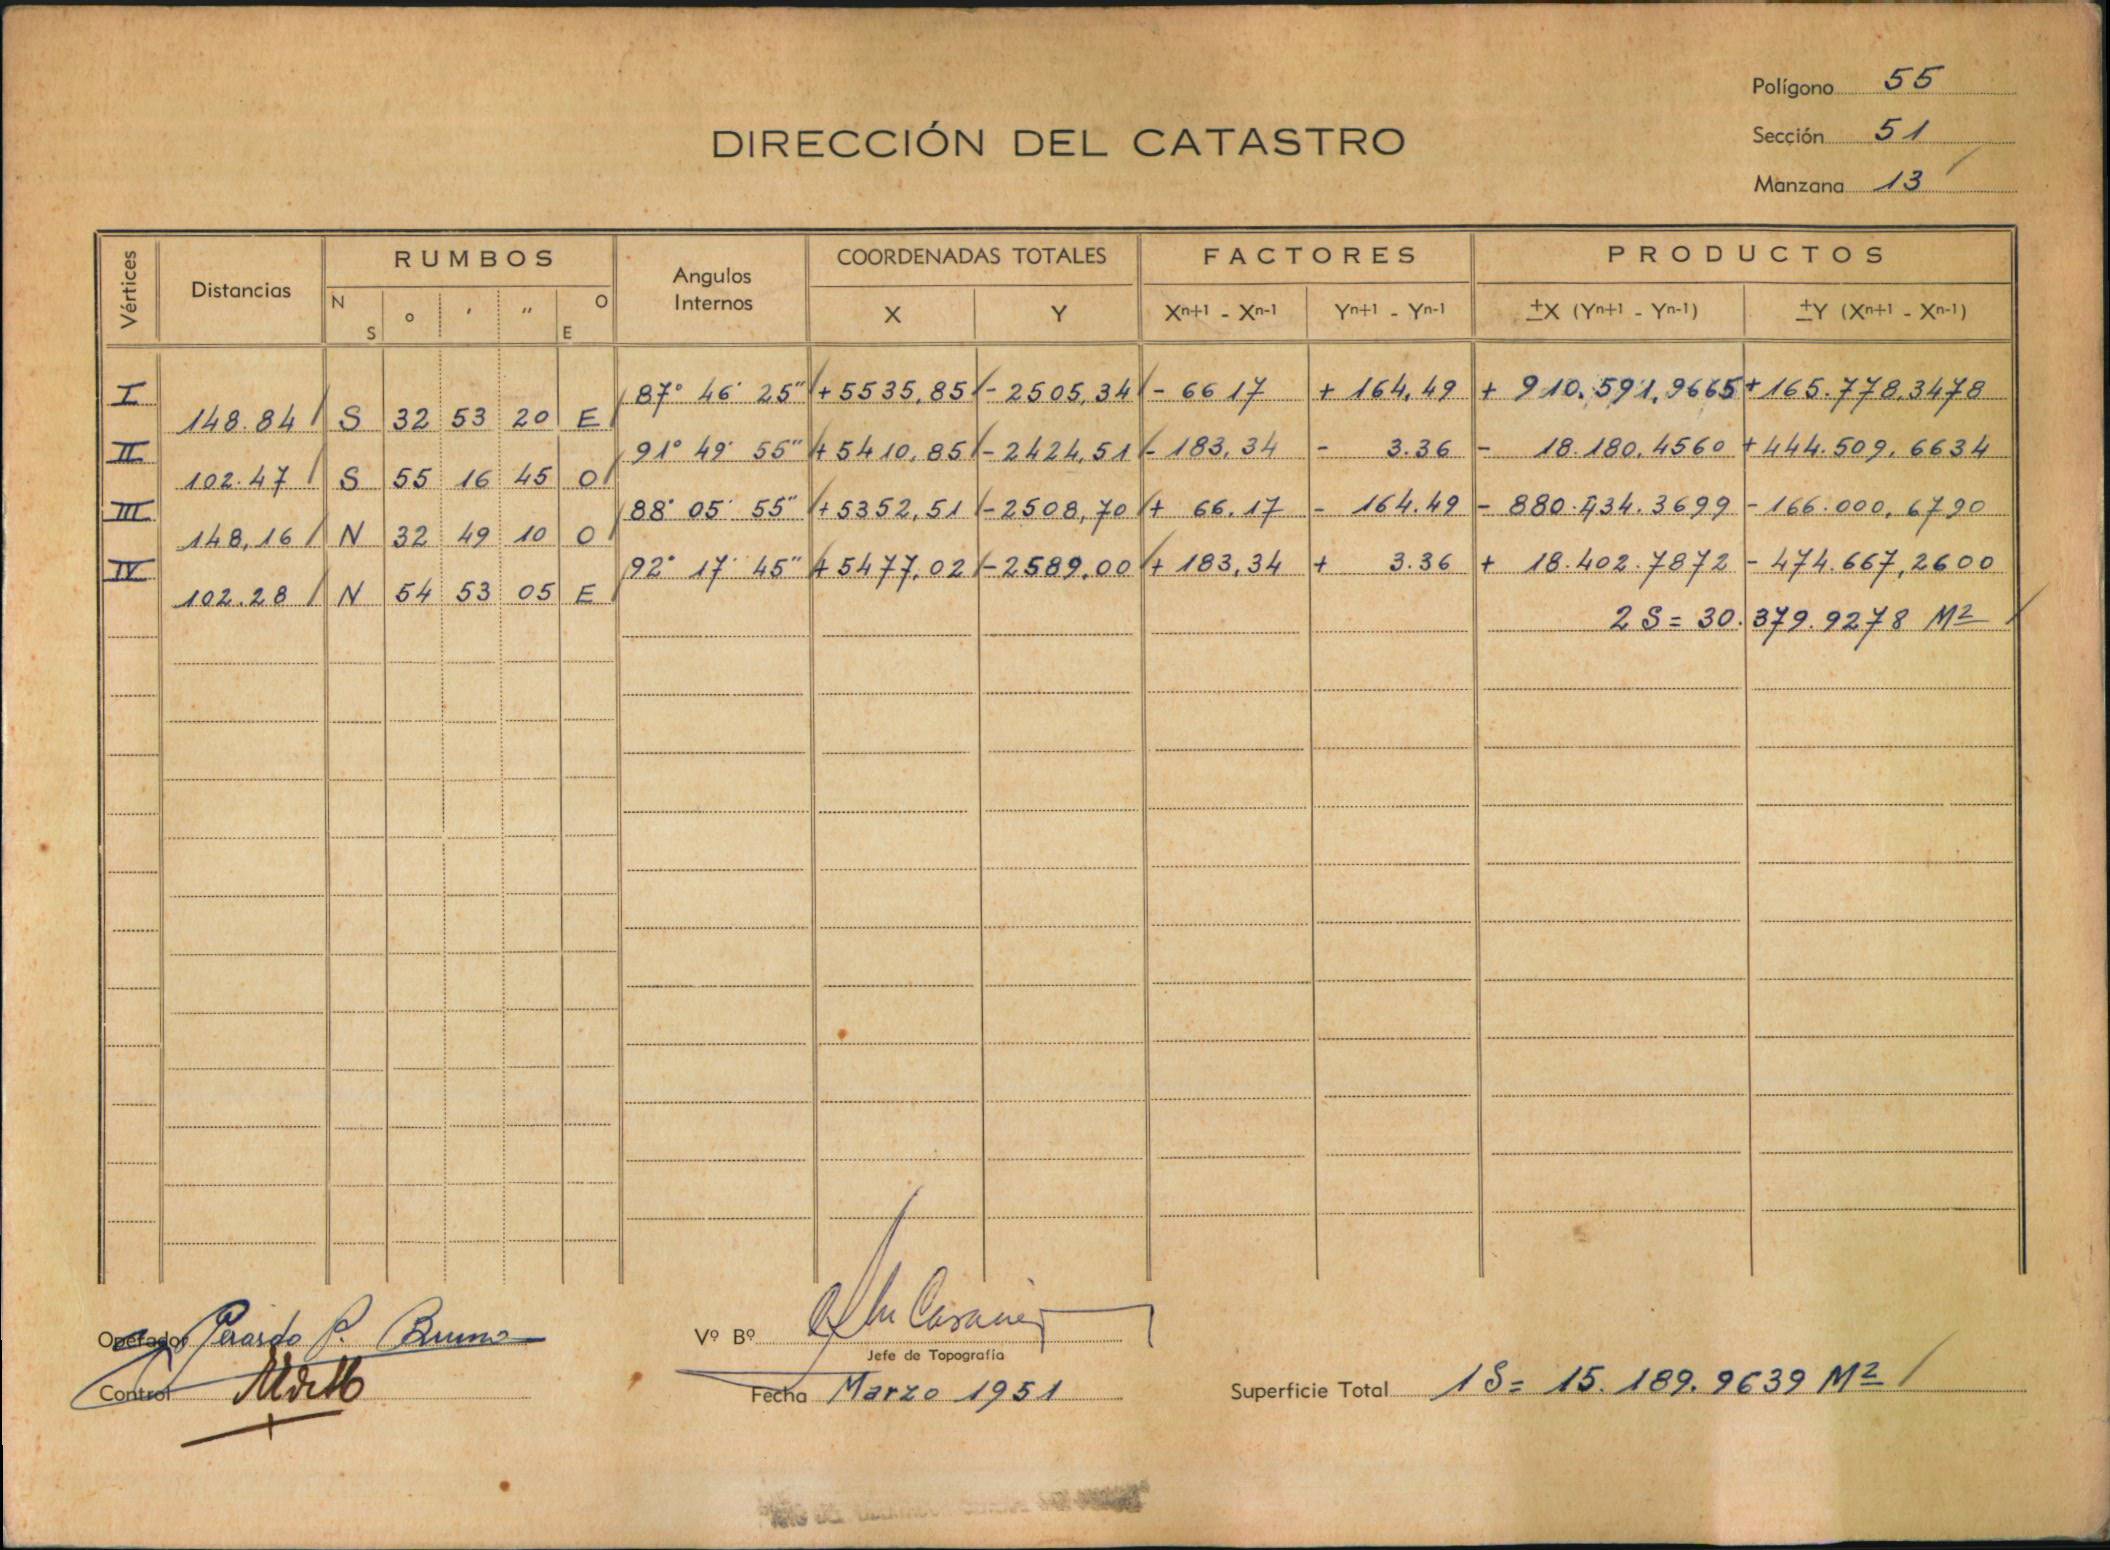 Polígono 55
DIRECCIÓN DEL CATASTRO
Sección 51
Manzana 13
Vértices
Distancias
RUMBOS
N S o ' " O E
Angulos Internos
COORDENADAS TOTALES
X Y
FACTORES
Xn+1 - Xn-1 Yn+1 - Yn-1
PRODUCTOS
±X (Yn+1 - Yn-1) ±Y (Xn+1 - Xn-1)
I 87° 46' 25" +5535,85 -2505,34 -66 17 +164,49 +910.591,9665 +165.778,3478
148.84 S 32 53 20 E
II 91° 49' 55" +5410,85 -2424,51 -183,34 -3.36 -18.180,4560 +444.509,6634
102.47 S 55 16 45 O
III 88° 05' 55" +5352,51 -2508,70 +66.17 -164.49 -880.434.3699 -166.000,6790
148,16 N 32 49 10 O
IV 92° 17' 45" +5477,02 -2589,00 +183,34 +3.36 +18.402.7872 -474.667,2600
102.28 N 54 53 05 E
2 S = 30.379.9278 M²
Operador P. Bruno
Vº Bº
Jefe de Topografía
Control
Fecha Marzo 1951
Superficie Total 1S = 15.189.9639 M²